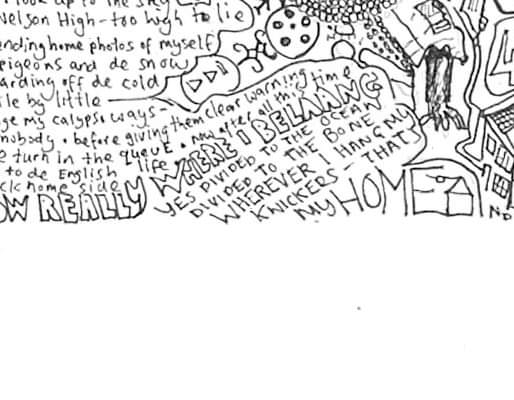 look up to the sky
Nelson High - too high to lie
ending home photos of myself
pigeons and de snow
arding off de cold
ile by little
ge my calypso ways -
nobody . before giving them clear warning
e turn in the queue . now after all this time
to de English life
ck home side
OW REALLY
WHERE I BELAANG
YES DIVIDED TO THE OCEAN
DIVIDED TO THE BONE
WHEREVER I HANG MY
KNICKERS - THAT'S
MY HOM